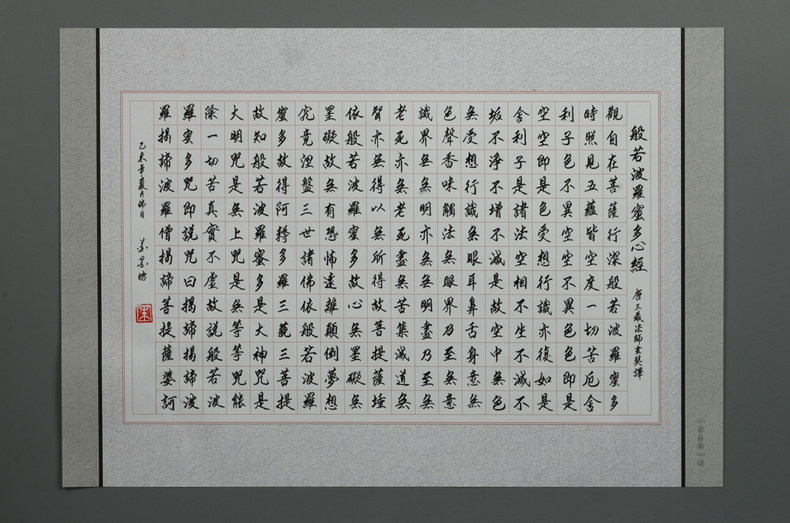 般若波羅蜜多心經 唐三藏法師玄奘譯
觀自在菩薩行深般若波羅蜜多
時照見五蘊皆空度一切苦厄舍
利子色不異空空不異色色即是
空空即是色受想行識亦復如是
舍利子是諸法空相不生不滅不
垢不淨不增不減是故空中無色
無受想行識無眼耳鼻舌身意無
色聲香味觸法無眼界乃至無意
識界無無明亦無無明盡乃至無
老死亦無老死盡無苦集滅道無
智亦無得以無所得故菩提薩埵
依般若波羅蜜多故心無罣礙無
罣礙故無有恐怖遠離顛倒夢想
究竟涅盤三世諸佛依般若波羅
蜜多故得阿耨多羅三藐三菩提
故知般若波羅蜜多是大神咒是
大明咒是無上咒是無等等咒能
除一切苦真實不虛故說般若波
羅蜜多咒即說咒曰揭諦揭諦波
羅揭諦波羅僧揭諦菩提薩婆訶
乙未年夏月佛日